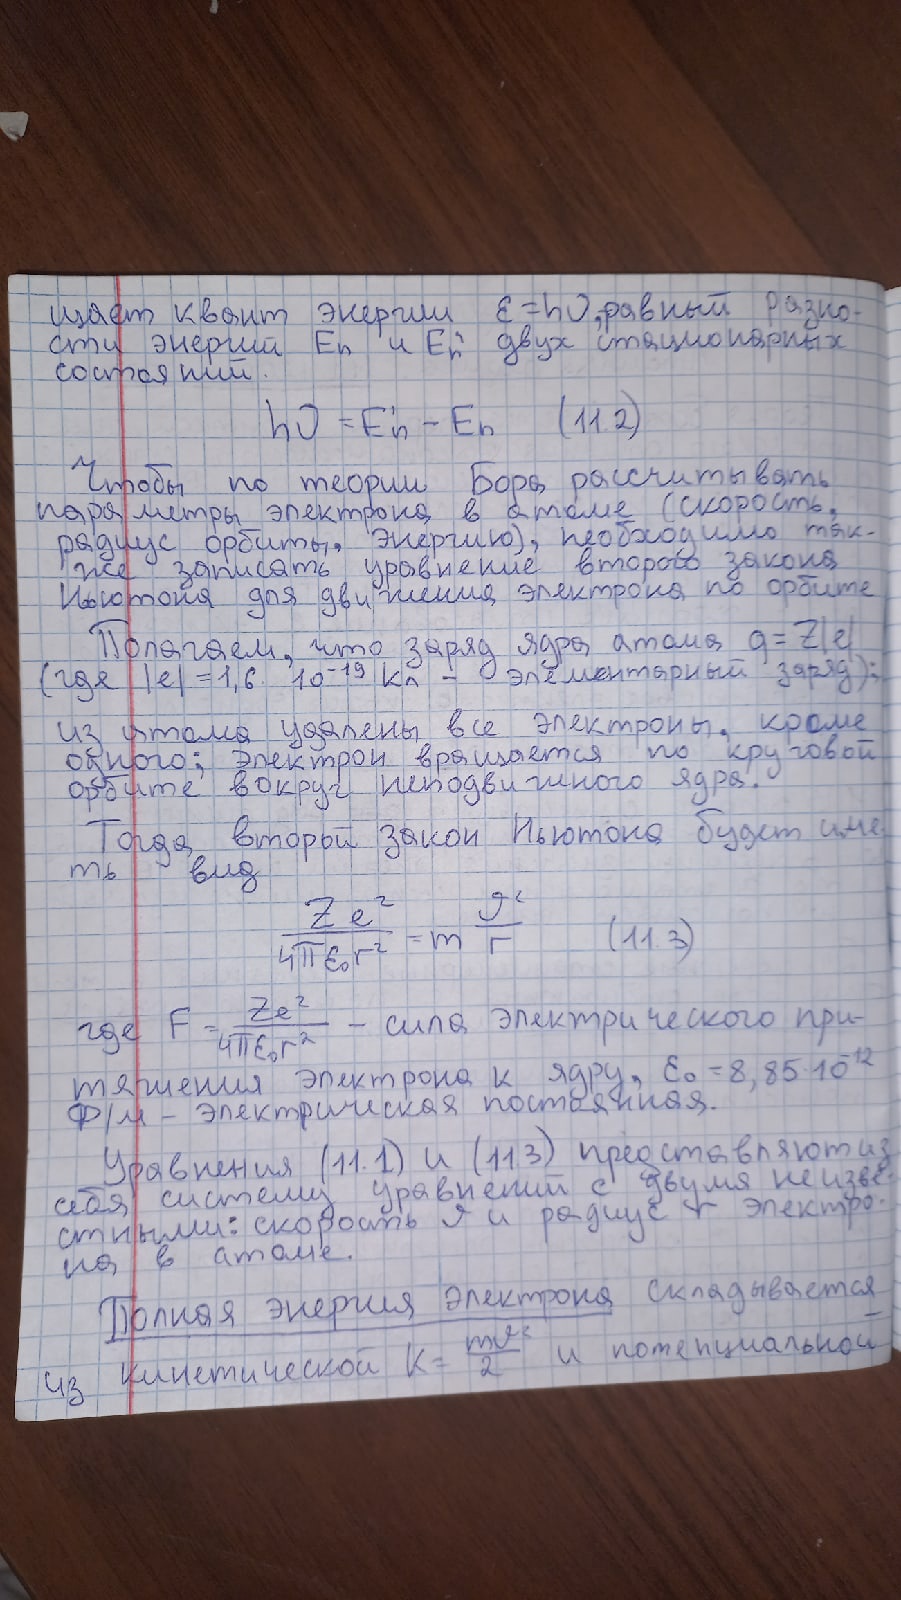 щает квант энергии ε=hϑ, равный разно-
сти энергий Eₙ и E'ₙ двух стационарных
состояний.
hϑ = E'ₙ − Eₙ (11.2)
Чтобы по теории Бора рассчитывать
параметры электрона в атоме (скорость,
радиус орбиты, энергию), необходимо так-
же записать уравнение второго закона
Ньютона для движения электрона по орбите
Полагаем, что заряд ядра атома q=Z|e|
(где |e|=1,6·10⁻¹⁹ Кл − элементарный заряд);
из атома удалены все электроны, кроме
одного; электрон вращается по круговой
орбите вокруг неподвижного ядра.
Тогда второй закон Ньютона будет име
ть вид
Ze²/4πε₀r² = m ϑ²/r (11.3)
где F = Ze²/4πε₀r² − сила электрического при-
тяжения электрона к ядру, ε₀ = 8,85·10⁻¹²
Ф/м − электрическая постоянная.
Уравнения (11.1) и (11.3) представляют из
себя систему уравнений с двумя неизве-
стными: скорость ϑ и радиус r электро-
на в атоме.
Полная энергия электрона складывается
из кинетической K = mϑ²/2 и потенциальной